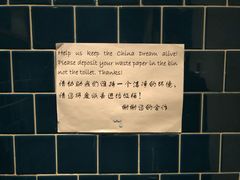 Help us keep the China Dream alive!
Please deposit your waste paper in the bin
not the toilet. Thanks!
请协助我们维持一个清净的环境,
请您将废纸丢进垃圾桶!
谢谢您的合作